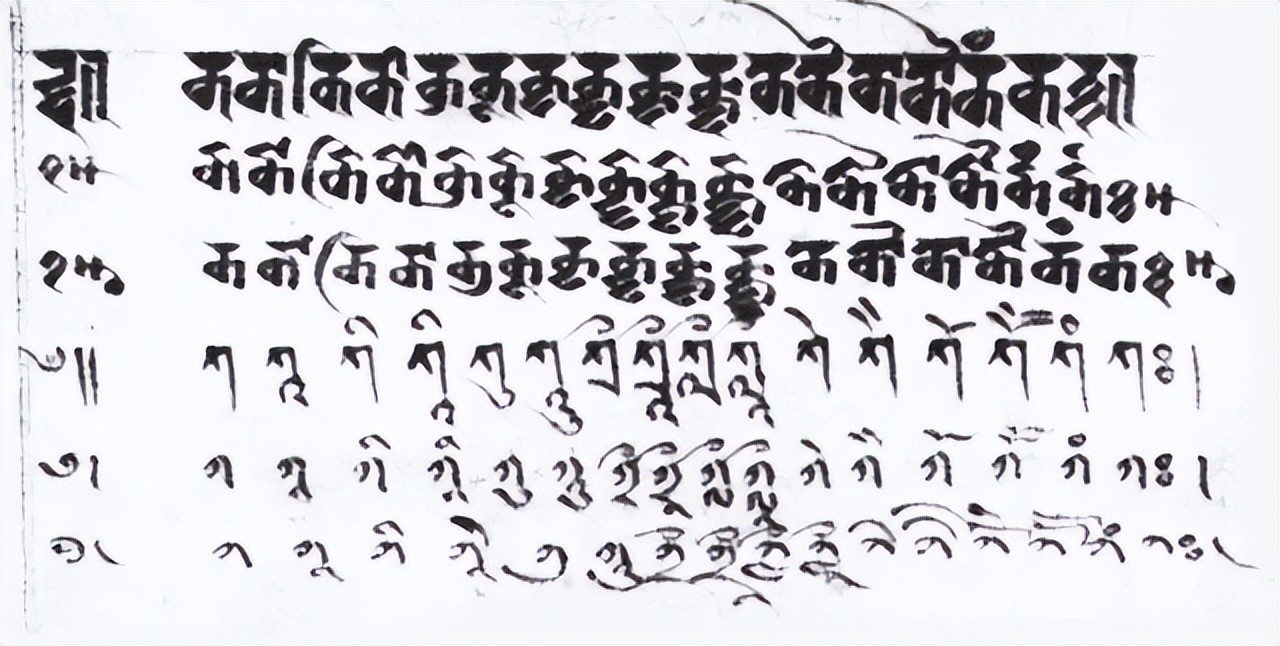 क का कि की कु कू कृ कॄ कॢ कॣ के कै को कौ कं कः॥
क का कि की कु कू कृ कॄ कॢ कॣ के कै को कौ कं कः॥
क का कि की कु कू कृ कॄ कॢ कॣ के कै को कौ कं कः॥
༄༎ ཀ ཀཱ ཀི ཀཱི ཀུ ཀཱུ ཀྲྀ ཀྲཱྀ ཀླྀ ཀླཱྀ ཀེ ཀཻ ཀོ ཀཽ ཀཾ ཀཿ །
༄། ཀ ཀཱ ཀི ཀཱི ཀུ ཀཱུ ཀྲྀ ཀྲཱྀ ཀླྀ ཀླཱྀ ཀེ ཀཻ ཀོ ཀཽ ཀཾ ཀཿ །
༄། ཀ ཀཱ ཀི ཀཱི ཀུ ཀཱུ ཀྲྀ ཀྲཱྀ ཀླྀ ཀླཱྀ ཀེ ཀཻ ཀོ ཀཽ ཀཾ ཀཿ །